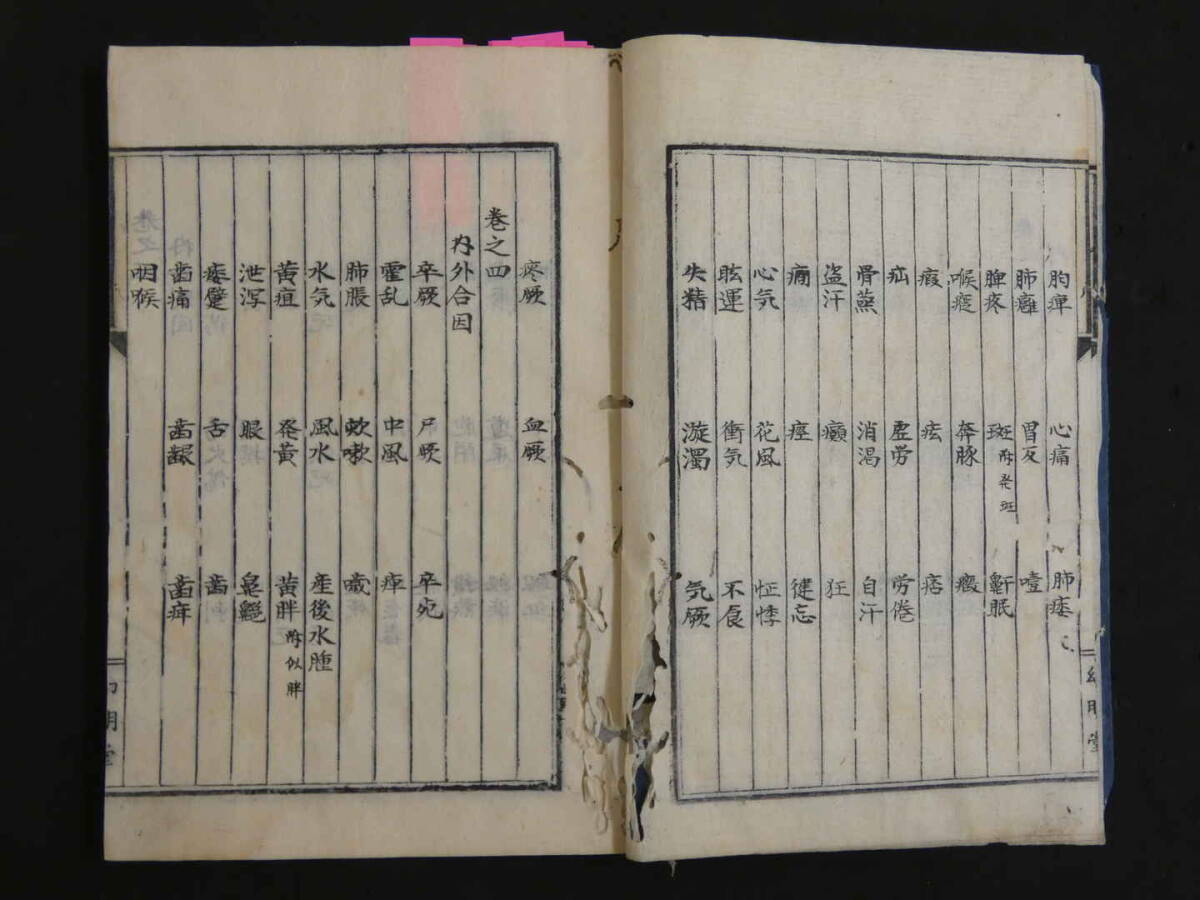 胸痺 心痛 肺痿
肺癰 胃反 噎
脾疼 斑 附発斑 鼾眠
喉痙 奔豚
瘕 痃 痞
疝 虚労 労倦
骨蒸 消渇 自汗
盗汗 癲 狂
癇 痓 健忘
心気 花風 怔悸
眩運 衝気 不食
失精 漩濁 気厥
疼厥 血厥
巻之四
内外合因
卒厥 尸厥 卒死
霍乱 中風 痺
肺脹 欬嗽 噦
水気 風水 産後水腫
黄疸 発黄 黄胖 附似胖
泄瀉 眼
痿躄 舌 歯
歯痛 歯齦
咽喉
幻明堂
幻明堂